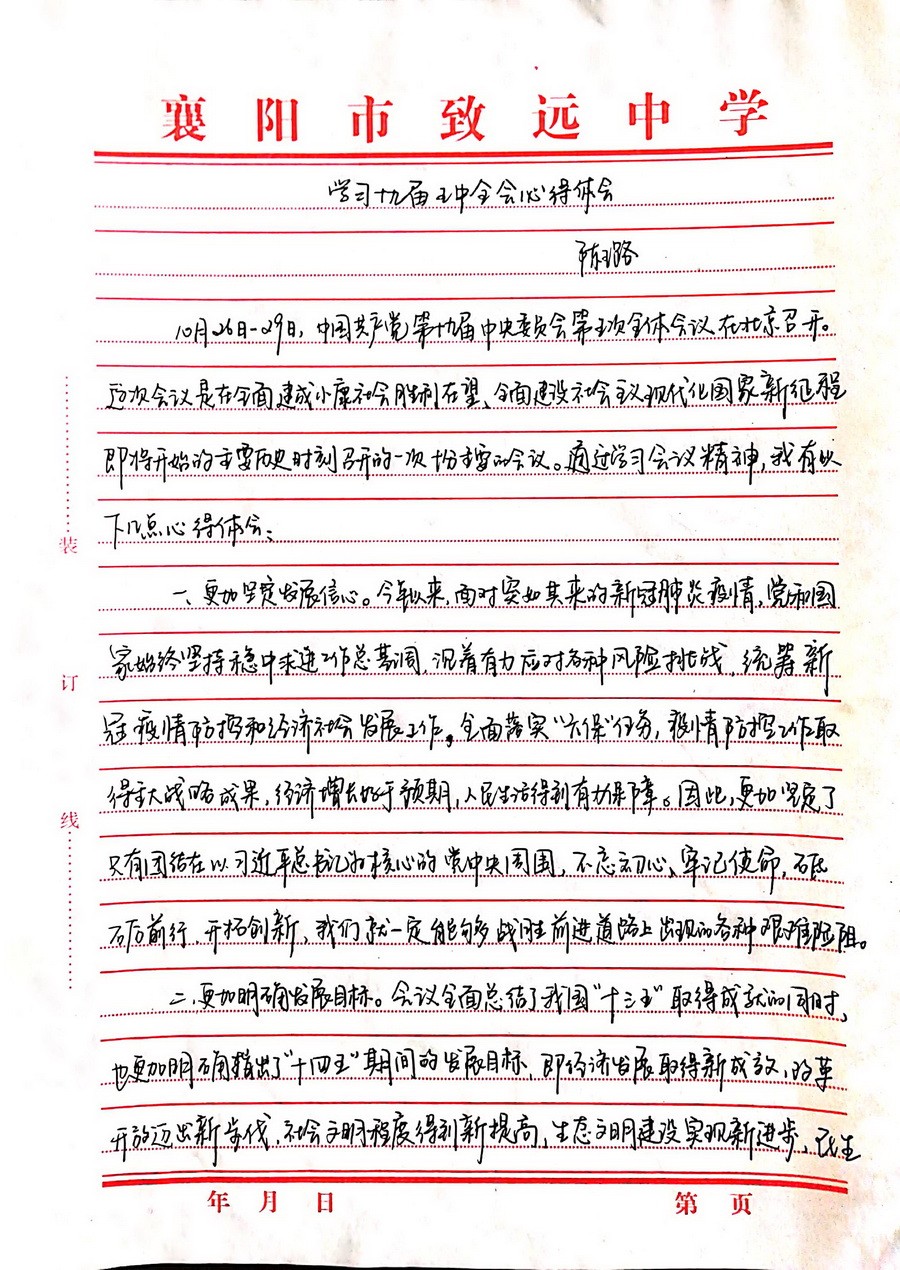 襄阳市致远中学
学习十九届五中全会心得体会
陈璐
10月26日-29日，中国共产党第十九届中央委员会第五次全体会议在北京召开。
这次会议是在全面建成小康社会胜利在望、全面建设社会主义现代化国家新征程
即将开始的重要历史时刻召开的一次十分重要的会议。通过学习会议精神，我有以
下几点心得体会：
一、更加坚定发展信心。今年以来，面对突如其来的新冠肺炎疫情，党和国
家始终坚持稳中求进工作总基调，沉着有力应对各种风险挑战，统筹新
冠疫情防控和经济社会发展工作，全面落实“六保”任务，疫情防控工作取
得重大战略成果，经济增长好于预期，人民生活得到有力保障。因此，更加坚定了
只有团结在以习近平总书记为核心的党中央周围，不忘初心、牢记使命，砥
砺前行，开拓创新，我们就一定能够战胜前进道路上出现的各种艰难险阻。
二、更加明确发展目标。会议全面总结了我国“十三五”取得成就的同时，
也更加明确指出了“十四五”期间的发展目标，即经济发展取得新成效，改革
开放迈出新步伐，社会文明程度得到新提高，生态文明建设实现新进步，民生
年 月 日
第 页
装
订
线